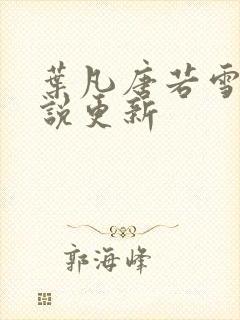 葉凡唐若雪
說更新
郭海峰